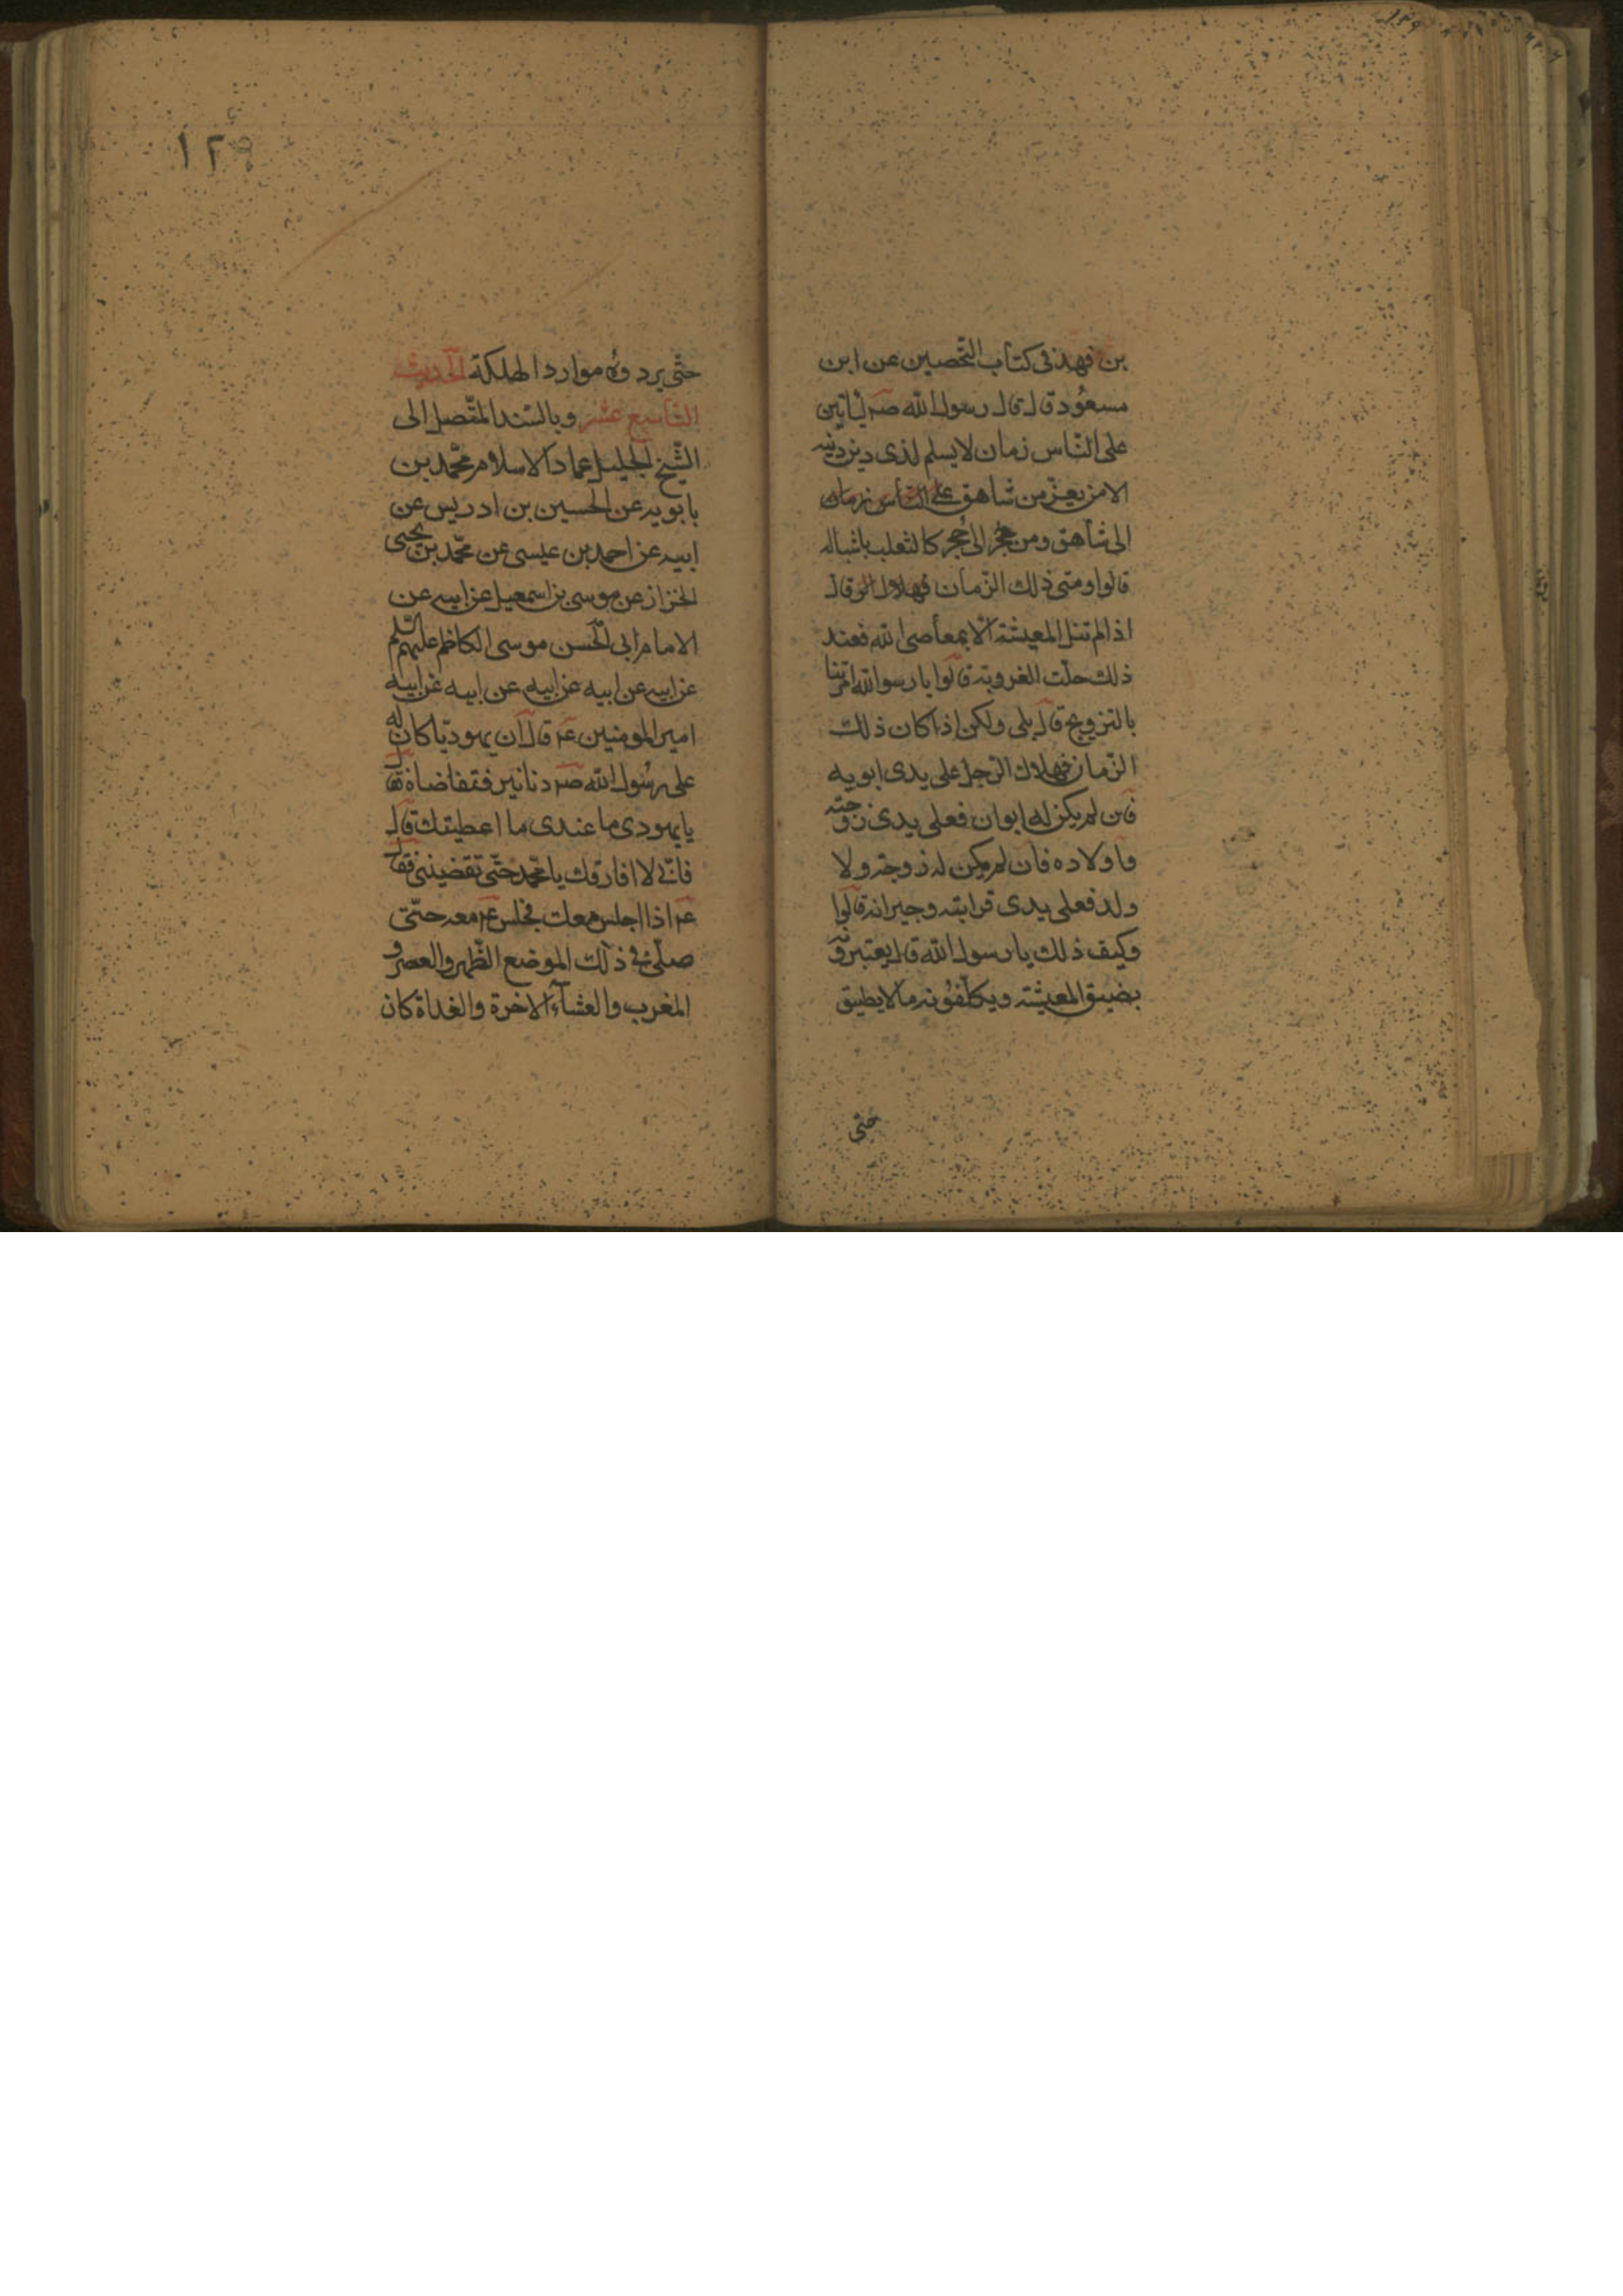 بن فهد فى كتاب التّحصين عن ابن
مسعُود قال قال رسول الله صم ليأتين
على النّاس زمان لا يسلم لذى دين دينه
الا من يفرّ من شاهق
الى شاهق ومن حُجر الى حُجر كالثعلب باشباله
قالوا ومتى ذلك الزّمان قال
اذا لم تنل المعيشة الّا بمعاصى الله فعند
ذلك حلّت العزوبة قالوا يا رسول الله امرتنا
بالتزويج قال بلى ولكن اذا كان ذلك
الزّمان فهلاك الرّجل على يدى ابويه
فان لم يكن له ابوان فعلى يدى زوجته
واولاده فان لم يكن له زوجة ولا
ولد فعلى يدى قرابته وجيرانه قالوا
وكيف ذلك يا رسول الله قال يعيّرونه
بضيق المعيشة ويكلّفُونه ما لا يطيق
حتى
١٢٩
حتّى يردوُه موارد الهلكة الحديث
التّاسع عشر وبالسّند المتّصل الى
الشّيخ الجليل عماد الاسلام محمّد بن
بابويه عن الحسين بن ادريس عن
ابيه عن احمد بن عيسى عن محمّد بن يحيى
الخزاز عن موسى بن اسمعيل عن ابيه عن
الامام ابى الحسن موسى الكاظم عليهم السّلم
عن ابيه عن ابيه عن ابيه عن ابيه عن ابيه
امير المومنين عم قال ان يهوديّا كان له
على رسُول الله صم دنانير فتقاضاه فقال
يا يهودى ما عندى ما اعطيتك قال
فانّى لا افارقك يا محمّد حتّى تقضينى فقال
عم اذا اجلس معك فجلس عم معه حتّى
صلّى فى ذلك الموضع الظّهر والعصر و
المغرب والعشآء الاخرة والغداة كان